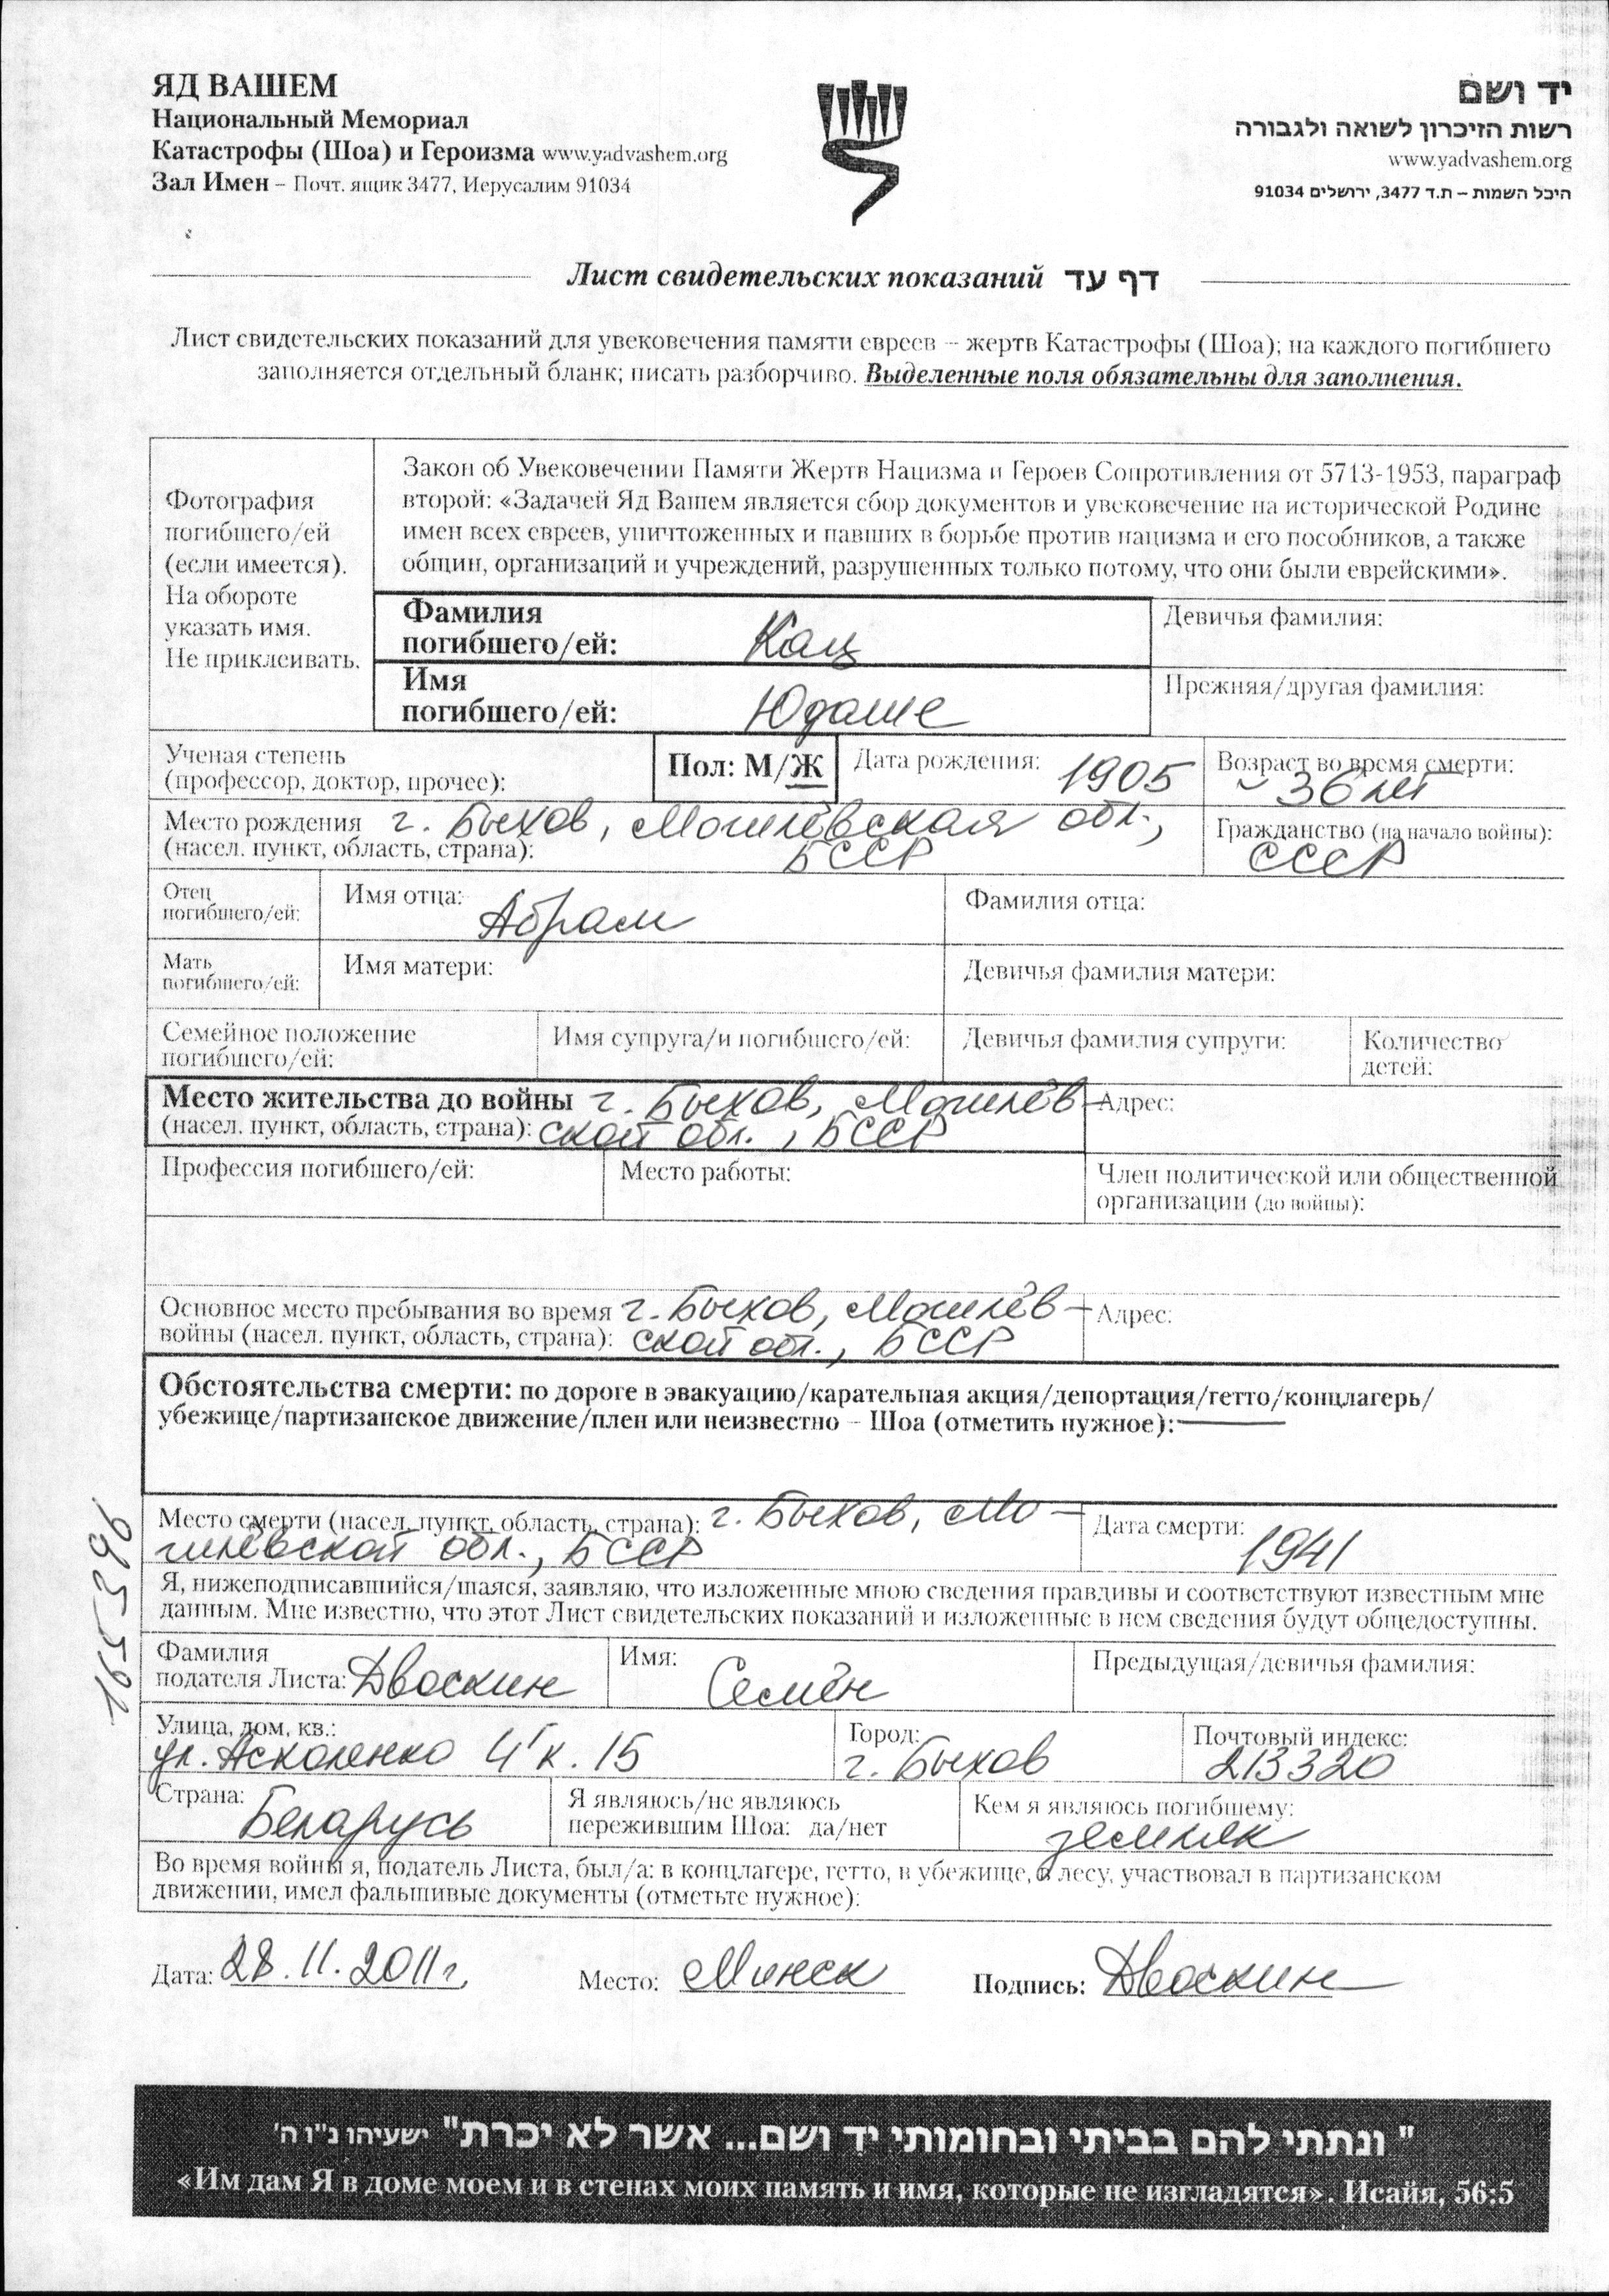 ЯД ВАШЕМ
Национальный Мемориал
Катастрофы (Шоа) и Героизма www.yadvashem.org
Зал Имен – Почт. ящик 3477, Иерусалим 91034
יד ושם
רשות הזיכרון לשואה ולגבורה
www.yadvashem.org
היכל השמות – ת.ד 3477, ירושלים 91034
Лист свидетельских показаний דף עד
Лист свидетельских показаний для увековечения памяти евреев – жертв Катастрофы (Шоа); на каждого погибшего
заполняется отдельный бланк; писать разборчиво. Выделенные поля обязательны для заполнения.
Фотография
погибшего/ей
(если имеется).
На обороте
указать имя.
Не приклеивать.
Закон об Увековечении Памяти Жертв Нацизма и Героев Сопротивления от 5713-1953, параграф
второй: «Задачей Яд Вашем является сбор документов и увековечение на исторической Родине
имен всех евреев, уничтоженных и павших в борьбе против нацизма и его пособников, а также
общин, организаций и учреждений, разрушенных только потому, что они были еврейскими».
Фамилия
погибшего/ей: Кац
Девичья фамилия:
Имя
погибшего/ей: Юдаше
Прежняя/другая фамилия:
Ученая степень
(профессор, доктор, прочее):
Пол: М/Ж
Дата рождения: 1905
Возраст во время смерти:
~ 36 лет
Место рождения г. Быхов, Могилёвская обл.,
(насел. пункт, область, страна): БССР
Гражданство (на начало войны):
СССР
Отец
погибшего/ей:
Имя отца: Абрам
Фамилия отца:
Мать
погибшего/ей:
Имя матери:
Девичья фамилия матери:
Семейное положение
погибшего/ей:
Имя супруга/и погибшего/ей:
Девичья фамилия супруги:
Количество
детей:
Место жительства до войны г. Быхов, Могилёв-
(насел. пункт, область, страна): ской обл., БССР
Адрес:
Профессия погибшего/ей:
Место работы:
Член политической или общественной
организации (до войны):
Основное место пребывания во время г. Быхов, Могилёв-
войны (насел. пункт, область, страна): ской обл., БССР
Адрес:
Обстоятельства смерти: по дороге в эвакуацию/карательная акция/депортация/гетто/концлагерь/
убежище/партизанское движение/плен или неизвестно – Шоа (отметить нужное):
Место смерти (насел. пункт, область, страна): г. Быхов, Мо-
гилёвской обл., БССР
Дата смерти: 1941
Я, нижеподписавшийся/шаяся, заявляю, что изложенные мною сведения правдивы и соответствуют известным мне
данным. Мне известно, что этот Лист свидетельских показаний и изложенные в нем сведения будут общедоступны.
Фамилия
подателя Листа: Двоскин
Имя: Семён
Предыдущая/девичья фамилия:
Улица, дом, кв.:
ул. Асколенко 4 к. 15
Город:
г. Быхов
Почтовый индекс:
213320
Страна: Беларусь
Я являюсь/не являюсь
пережившим Шоа: да/нет
Кем я являюсь погибшему:
земляк
Во время войны я, податель Листа, был/а: в концлагере, гетто, в убежище, в лесу, участвовал в партизанском
движении, имел фальшивые документы (отметьте нужное):
Дата: 28.11.2011г.
Место: Минск
Подпись: Двоскин
165396
" ונתתי להם בביתי ובחומותי יד ושם... אשר לא יכרת" ישעיהו נ"ו ה'
«Им дам Я в доме моем и в стенах моих память и имя, которые не изгладятся». Исайя, 56:5